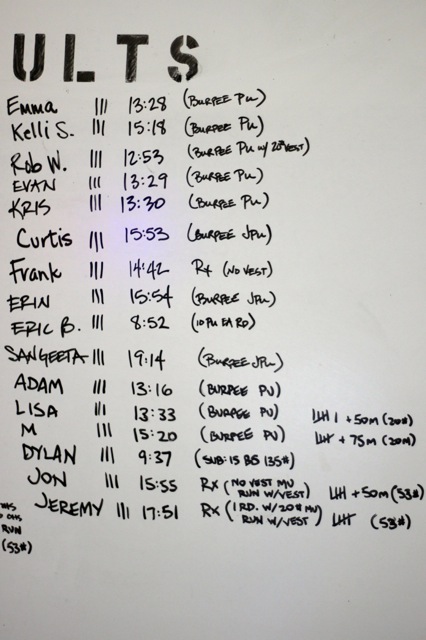 ULTS
Emma ||| 13:28 (BURPEE PU)
Kelli S. ||| 15:18 (BURPEE PU)
Rob W. ||| 12:53 (BURPEE PU W/ 20# VEST)
EVAN ||| 13:29 (BURPEE PU)
KRIS ||| 13:30 (BURPEE PU)
Curtis ||| 15:53 (BURPEE JPU)
Frank ||| 14:42 Rx (NO VEST)
ERIN ||| 15:54 (BURPEE JPU)
ERIC B. ||| 8:52 (10 PU EA RD)
SANGEETA ||| 19:14 (BURPEE JPU)
ADAM ||| 13:16 (BURPEE PU)
LISA ||| 13:33 (BURPEE PU) 卌 | + 50m (20#)
M ||| 15:20 (BURPEE PU) 卌 + 75m (20#)
DYLAN ||| 9:37 (SUB: 15 BS 135#)
JON ||| 15:55 Rx (NO VEST MU RUN W/VEST) 卌 + 50m (53#)
JEREMY ||| 17:51 Rx (1 RD. W/20# MU RUN W/VEST) 卌 (53#)
RUN
(53#)